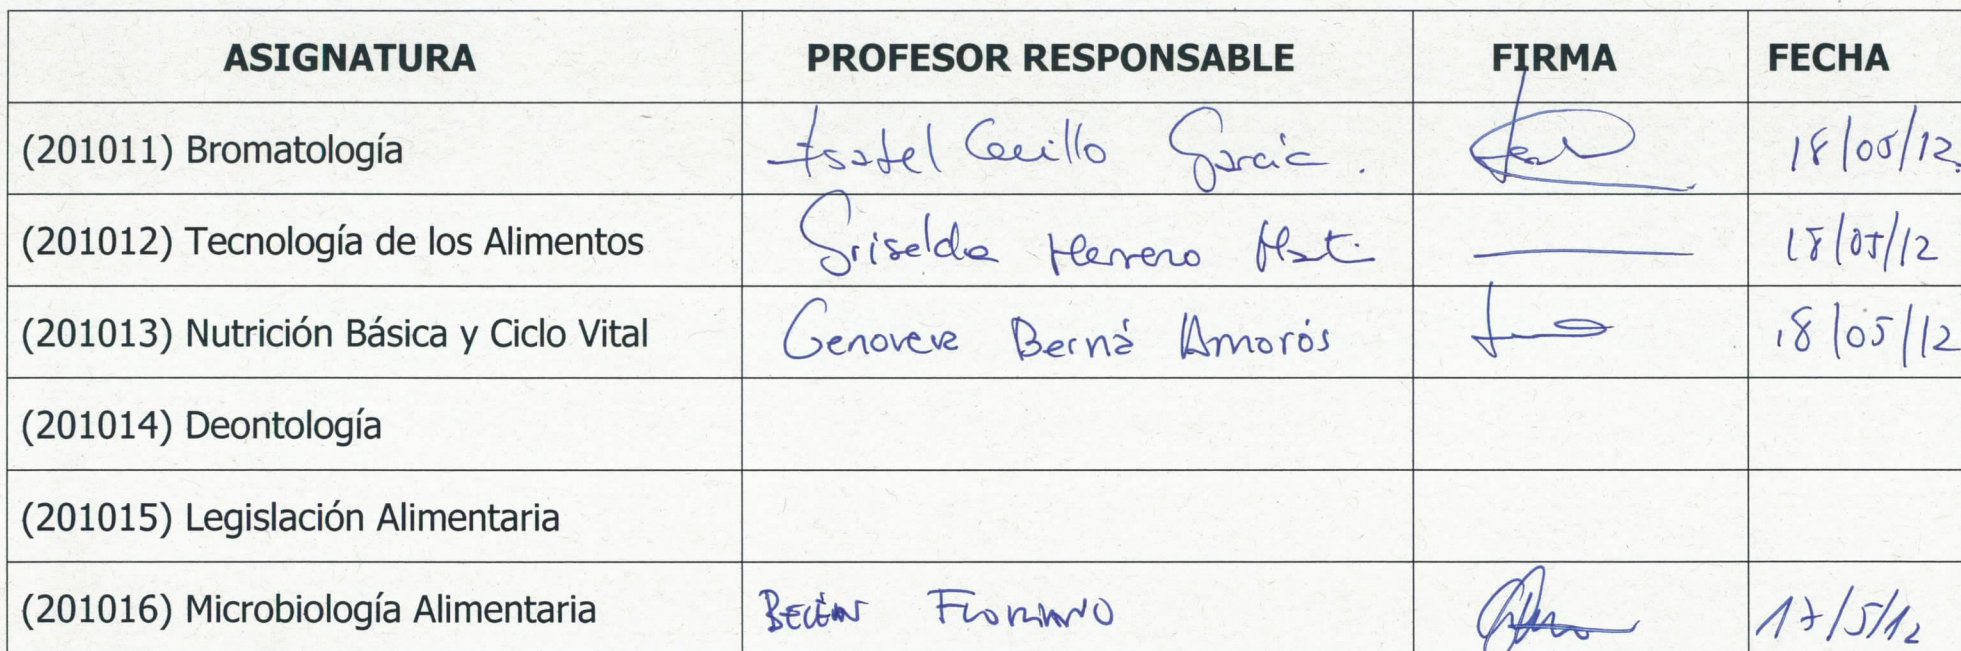 ASIGNATURA PROFESOR RESPONSABLE FIRMA FECHA
(201011) Bromatología Isabel Cerrillo García. 18/05/12.
(201012) Tecnología de los Alimentos Griselda Herrero 18/05/12
(201013) Nutrición Básica y Ciclo Vital Genoveva Berná Amorós 18/05/12
(201014) Deontología
(201015) Legislación Alimentaria
(201016) Microbiología Alimentaria BELÉN FLORIANO 17/5/12